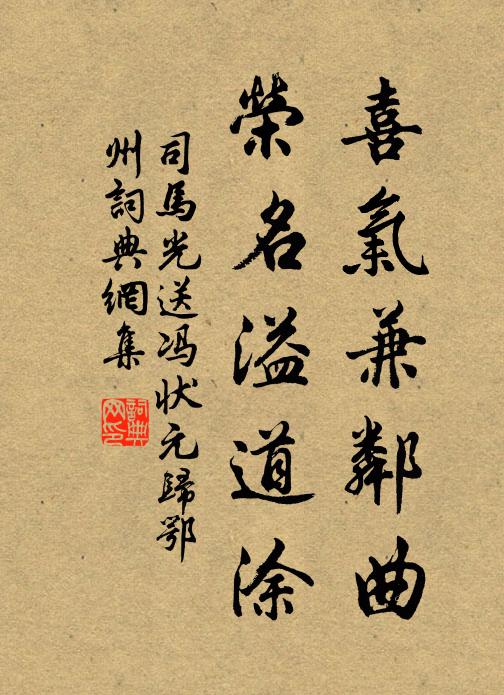 喜氣兼鄰曲
榮名溢道涂
司馬光送冯狀元歸鄂
州詞典網集
詞典
网印